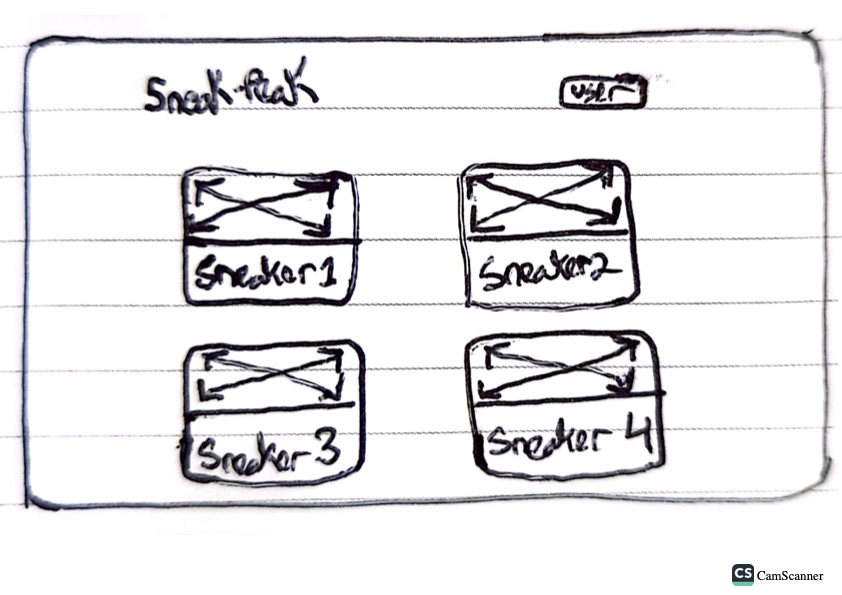 Sneak-Peak
user
Sneaker 1
Sneaker 2
Sneaker 3
Sneaker 4
CS CamScanner